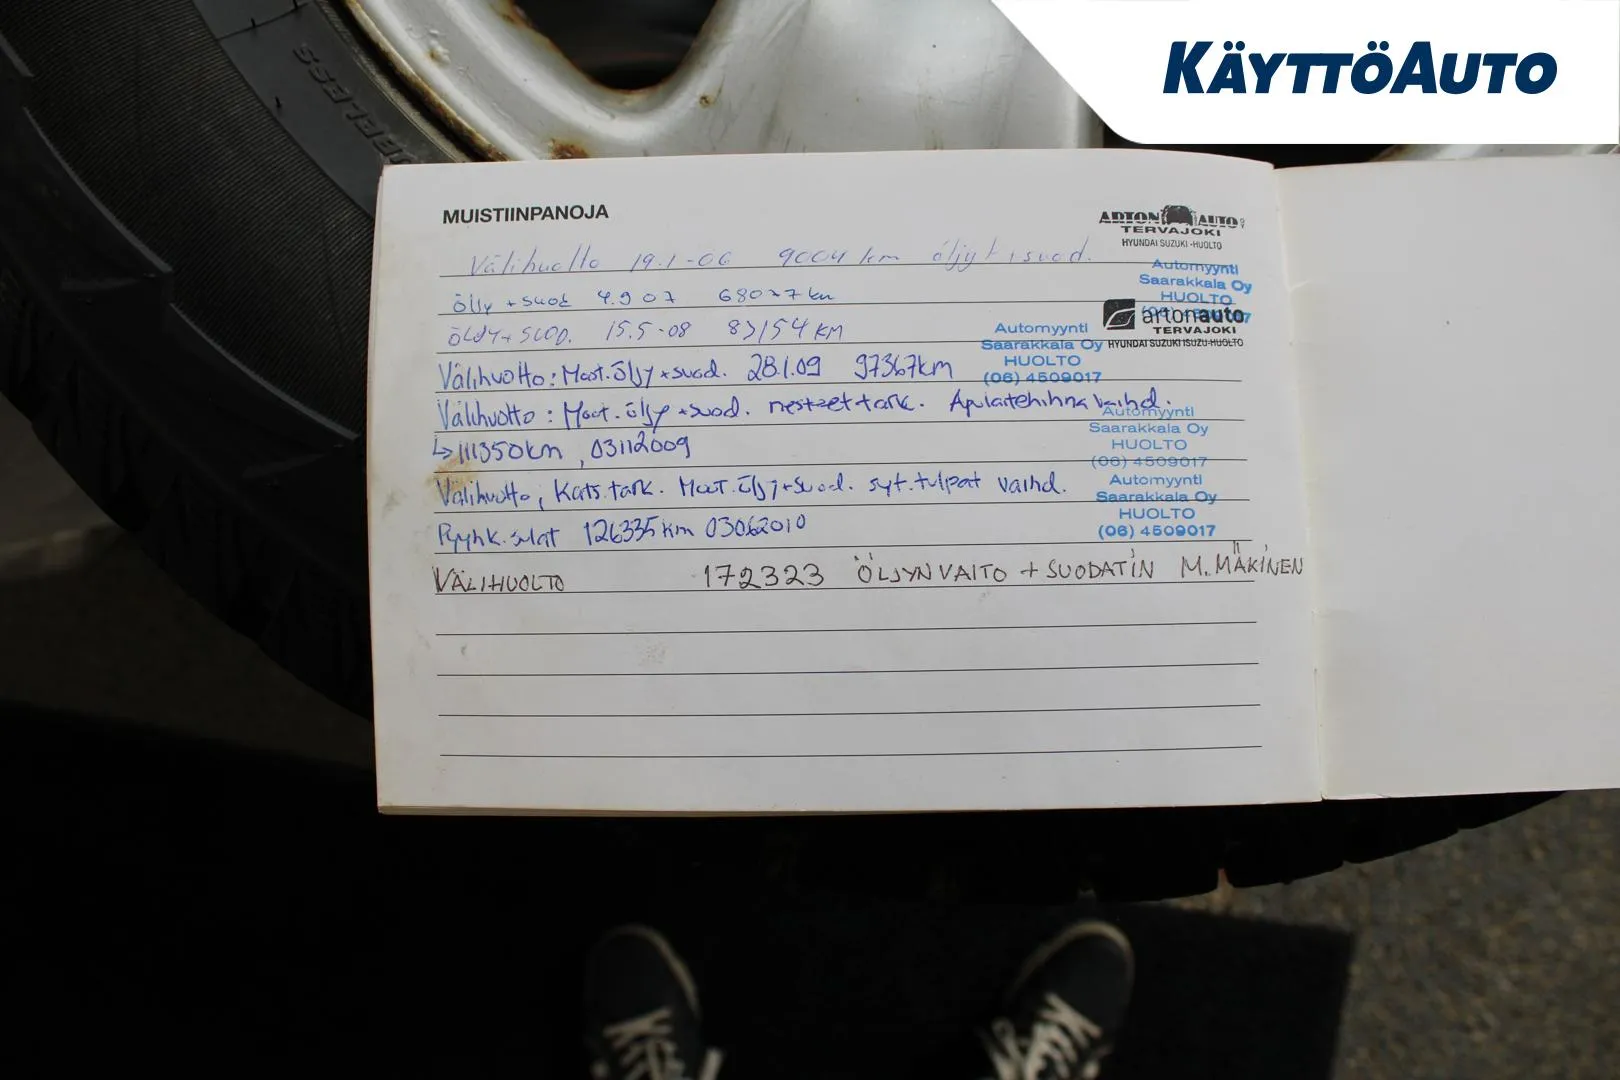 KÄYTTÖAUTO
TUBELESS
MUISTIINPANOJA
ARTON AUTO OY
TERVAJOKI
HYUNDAI SUZUKI -HUOLTO
Välihuolto 19.1-06 9004 km öljyt + suod.
Automyynti
Saarakkala Oy
HUOLTO
öljy + suod 4.9 07 68027 km
artonauto
TERVAJOKI
HYUNDAI SUZUKI ISUZU-HUOLTO
ÖLJY + SUOD. 15.5-08 83154 KM
Automyynti
Saarakkala Oy
HUOLTO
(06) 4509017
Välihuolto: Moot.öljy + suod. 28.1.09 97367km
Välihuolto: Moot.öljy + suod. nesteet tark. Apulaitehihna vaihd.
Automyynti
Saarakkala Oy
HUOLTO
(06) 4509017
↳ 111350km, 03112009
Välihuolto, Kats.tark. Moot.öljy + suod. syt.tulpat vaihd.
Automyynti
Saarakkala Oy
HUOLTO
(06) 4509017
Pyyhk.sulat 126335km 03062010
VÄLIHUOLTO 172323 ÖLJYNVAITO + SUODATIN M. MÄKINEN